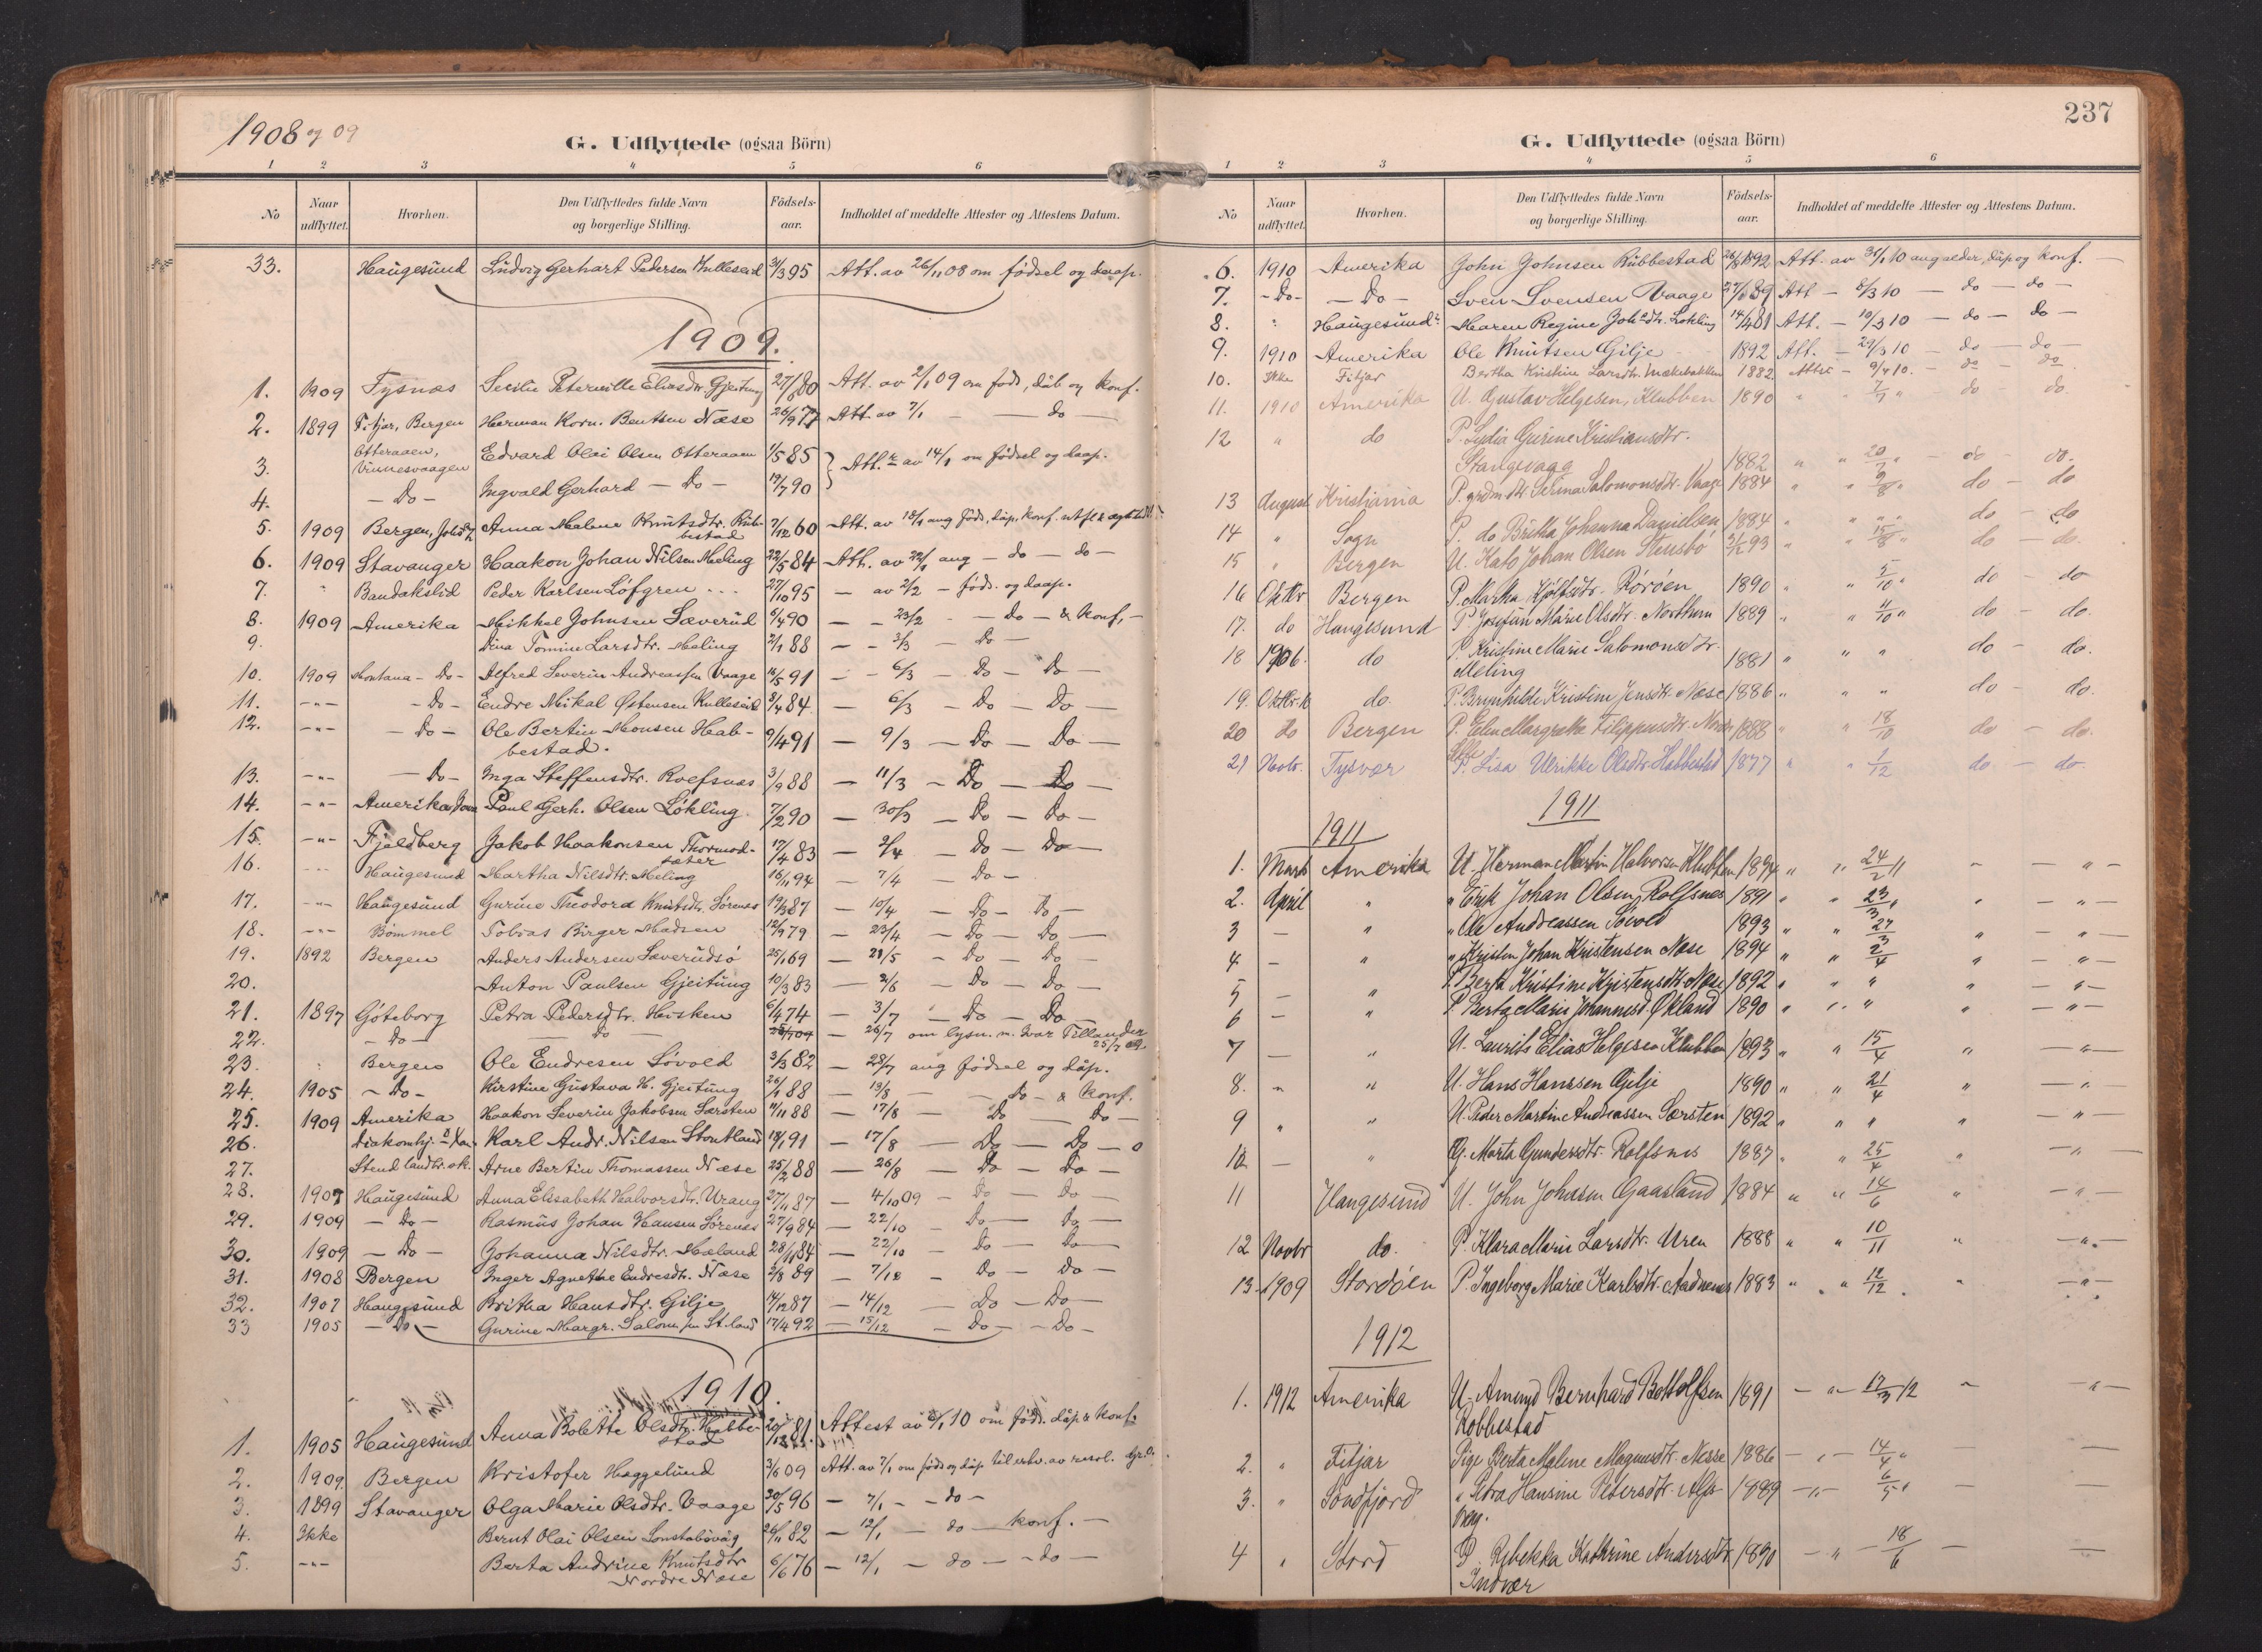 1908 og 09
G. Udflyttede (ogsaa Börn)
1 2 3 4 5 6
No Naar udflyttet. Hvorhen. Den Udflyttedes fulde Navn og borgerlige Stilling. Födsels-aar. Indholdet af meddelte Attester og Attestens Datum.
33. Haugesund Ludvig Gerhart Pedersen Kulleseid 31/3 95 Att. av 26/11 08 om fødsel og daap.
1909.
1. 1909 Tysnæs Secilie Peternille Eliasdtr. Gjeitung 27/ 80 Att. av 2/1 09 om føds, dåb og konf.
2. 1899 Fitjar, Bergen Herman Korn. Bentsen Næse 26/9 77 Att. av 7/1 — do —
3. Otteraaen, Vinnesvaagen Edvard Olai Olsen Otteraaen 1/5 85 Att.r av 14/1 om fødsel og daap.
4. — Do — Ingvald Gerhard — Do — 17/7 90
5. 1909 Bergen, Anna Malene Knutsdtr. Rub-
bestad 7/12 60 Att. av 18/1 ang føds, dåp, konf.
6. 1909 Stavanger Haakon Johan Nilsen Meling 22/5 84 Att. av 22/1 ang — do — do —
7. " Bandakslid Peder Karlsen Löfgren ... 27/10 95 — av 2/2 — føds. og daap.
8. 1909 Amerika Mikkel Johnsen Sæverud 6/4 90 — - 23/2 — Do — & konf. —
9. Dina Tomine Larsdtr. Meling 2/1 88 — - 3/3 — Do —
10. 1909 Montana — Do — Alfred Severin Andreassen Vaage 16/5 91 — - 6/3 — Do — Do —
11. -"- - Do - Endre Mikal Østensen Kulleseid 8/4 84 — 6/3 — Do — Do —
12. -"- — Do — Ole Bertin Monsen Hab-
bestad. 9/4 91 — 9/3 — Do — Do —
13. -"- — Do — Inga Steffensdtr. Roefsnæs 3/9 88 — 11/3 — Do — Do —
14. -"- Amerika, Paul Gerh. Olsen Løkling 7/2 90 — 30/3 — Do — Do —
15. -"- Fjeldberg Jakob Haakonsen Thormod-
sæter 17/4 83 — 2/4 — Do — Do —
16. -"- Haugesund Martha Nilsdtr. Meling 16/11 94 — 7/4 — Do —
17. -"- Haugesund Gurine Theodora Knutsdtr. Sørenæs 19/3 87 — 10/4 — Do — Do —
18. -"- Bømmel Tobias Birger Madsen 12/9 79 — 23/4 — Do — Do —
19. 1892 Bergen Anders Andersen Sæverudsö 25/1 69 — 21/5 — Do — Do —
20. Anton Paulsen Gjeitung 10/3 83 — 2/6 — Do — Do —
21. 1897 Göteborg Petra Pedersdtr. Hisken 6/4 74 — 3/7 — Do — Do —
22. — Do — — Do — 25/7 09 — 26/7 om lysn. m. Ivar Tillander
23. " Bergen Ole Endresen Søvold 3/3 82 — 28/7 ang fødsel og dåp.
24. 1905 — Do — Kirstine Gustava H. Gjeitung 26/1 88 — 13/8 — — Do — & konf.
25. 1909 Amerika Haakon Severin Jakobsen Sæsten 11/11 88 — 17/8 — Do — Do —
26. Diakonhj. Karl Andr. Nilsen Stoutland 18/1 91 — 17/8 — Do — Do —
27. Stend landbr.sk. Arne Bertin Thomassen Næse 25/2 88 — 26/8 — Do — Do —
28. 1907 Haugesund Anna Elisabeth Halvorsdtr. Urang 27/11 87 — 4/10 09 — Do — Do —
29. 1909 — Do — Rasmus Johan Hansen Sørenæs 27/9 84 — 22/10 — Do — Do —
30. 1909 — Do — Johanna Nilsdtr. Mæland 28/1 84 — 22/10 — Do — Do —
31. 1908 Bergen Inger Agnethe Endresdtr. Næse 2/8 89 — 7/12 — Do — Do —
32. 1907 Haugesund Britha Hansdtr. Gilje 14/12 87 — 14/12 — Do — Do —
33 1905 — Do — Gurine Margr. Salom. 17/4 92 — 15/12 — Do — Do —
1910.
1. 1905 Haugesund Anna Bolette Olsdtr. Habbe-
stad 20/12 81. Attest av 6/1 10 om føds. dåp & konf.
2. 1909. Bergen Kristofer Haggelund 3/6 09 Att. av 7/1 om føds og dåp til
3. 1899 Stavanger Olga Marie Olsdtr. Vaage 20/5 96 — 7/1 — - do -
4. Ikke Bernt Olai Olsen 26/11 82 — 12/1 — do — konf. —
5. -"- Berta Andrine Knutsdtr
Nordre Næse 6/6 76 — 12/1 — do — - do —
237
G. Udflyttede (ogsaa Börn)
1 2 3 4 5 6
No Naar udflyttet. Hvorhen. Den Udflyttedes fulde Navn og borgerlige Stilling. Födsels-aar. Indholdet af meddelte Attester og Attestens Datum.
6. 1910 Amerika John Johnsen Rubbestad 1892 Att. av 31/1 10 ang alder, dåp og konf. —
7. - Do - — Do — Sven Svensen Vaage 27/ 89 Att — 8/3 10 — do — do —
8. " Haugesund Maren Regine Joh.dtr. Løkling 14/4 81 Att. — 10/3 10 — do — do —
9. 1910 Amerika Ole Knutsen Gilje 1892 Att. — 29/3 10 — do — do —
10. Ikke Fitjar Bertha Kristine Larsdtr. Mækebakken 1882 Attst — 9/4 10. — do — do
11. 1910 Amerika U. Gustav Helgesen, Klubben 1890 " " 7/7 " — do — do.
12 " do P. Lydia Gurine Kristiansdtr.
Stangevaag 1882 " " 20/7 " — do — do.
13 August Kristiania P. Serina Salomonsdtr. Vaage 1884 " " 9/8 do — do
14 " Sogn P. do Britha Johanna Danielsen 1884 " " " " do — do
15 " Bergen U. Kato Johan Olsen Stensbö 93 " " 15/8 " do — do.
16 Oktbr Bergen P. Marka Kjölfsdtr. Rörøen 1890 " " 5/10 " do — do
17. do Haugesund P. Josefine Marie Olsdtr. Northun 1889 " " 11/10 " do — do.
18 1906. do P. Kristine Marie Salomonsdtr.
Meling 1881 " " " do — do.
19. do. P. Brynhilde Kristine Jensdtr. Næse 1886 " " " do — do.
20 do Bergen P. Elen Margrethe Filippusdtr. 1888 " " 18/10 do — do.
21 Novbr. Tysvær Lisa Ulrikke Olsdtr. Habbestad 1877 " " 1/12 do — do.
1911
1911
1. Marts Amerika U. Herman Martin Halvorsen Klubben 1894 " " 24/2 11 - — " —
2. April " " Erik Johan Olsen, Rolfsnes 1891 " " 23/3 " " — " —
3 — " " Ole Andreassen Sövold 1893 " " 27/3 " — " —
4 — " " Kristen Johan Kristensen Næse 1894 " " 2/4 " — " —
5 — " P. Berta Kristine Kristensdtr. Næse 1892 " " " " — " —
6 — " P. Berta Marie Johannesd. Økland 1890 " " " " — " —
7 — " U. Laurits Elias Helgesen Klubben 1893 " " 15/4 " — " —
8. " " U. Hans Hanssen Gilje 1890 " " 21/4 " — " —
9 " " U. Peder Martin Andreassen Særsten 1892 " " " " — " —
10 — " G. Marta Gundersdtr. Rolfsnes 1887 " " 25/4 " — " —
11 Haugesund U. John Johnsen Gaasland 1884 " " 14/6 " — " —
12 Novbr do. P. Klara Marie Larsdtr. Uren 1888 " " 10/11 " — " —
13. 1909 Stordöen P. Ingeborg Marie Karlsdtr. Aadnenæs 1883 " " 12/12 " — " —
1912
1. 1912 Amerika U. Amund Bernhard Bottolfsen
Robbestad 1891 — " — 17/3 12 " — " —
2. " Fitjar Pige Berta Malene Magnusdtr. Nesse 1886 — " — 14/4 " — —
3. " Söndfjord " Petra Hansine Petersdtr. Alfs-
1889 — " — 6/5 " — —
4 " Stord P. Rebekka Kathrine Andersdtr.
Indvær 1890 — " — 18/6 — —